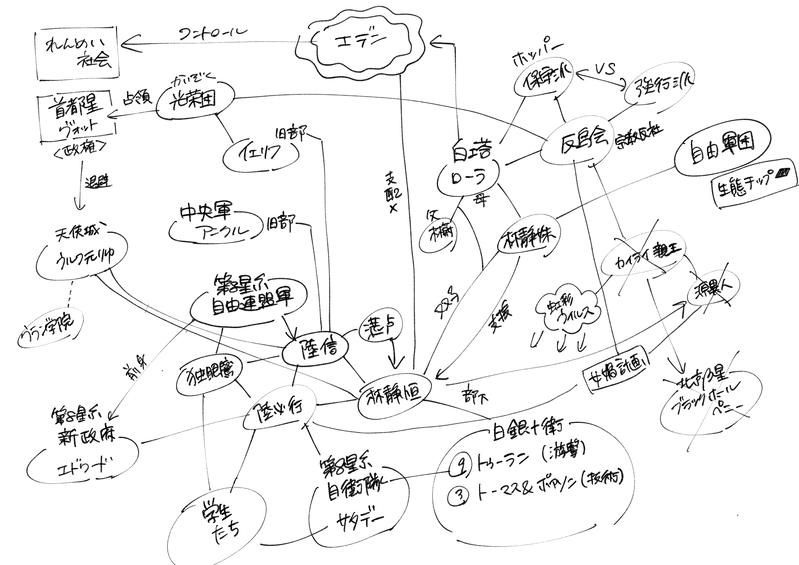 れんめい
社会
コントロール
エデン
首都星
ヴォット
<政権>
占領
かいぞく
光栄団
イエリフ
旧部
ホッパー
保守派
VS
強行派
反烏会
自由軍団
生態チップ
白塔
ローラ
父
母
林静姝
支配×
退避
天使城
ウルフ元帥
ブラン学院
中央軍
アニクル
旧部
第8星系
自由連盟軍
前身
独眼鷹
陸信
湛卢
陸必行
林静恒
父子
支援
部下
カイライ親王
源異人
虹彩
ウイルス
女媧計画
北京β星
ブラックホール
ペニー
第8星系
新政府
エドワード
学生
たち
第8星系
自衛隊
サタデー
白銀十衛
⑨ トゥーラン (遊撃)
③ トーマス&ポアソン (技術)